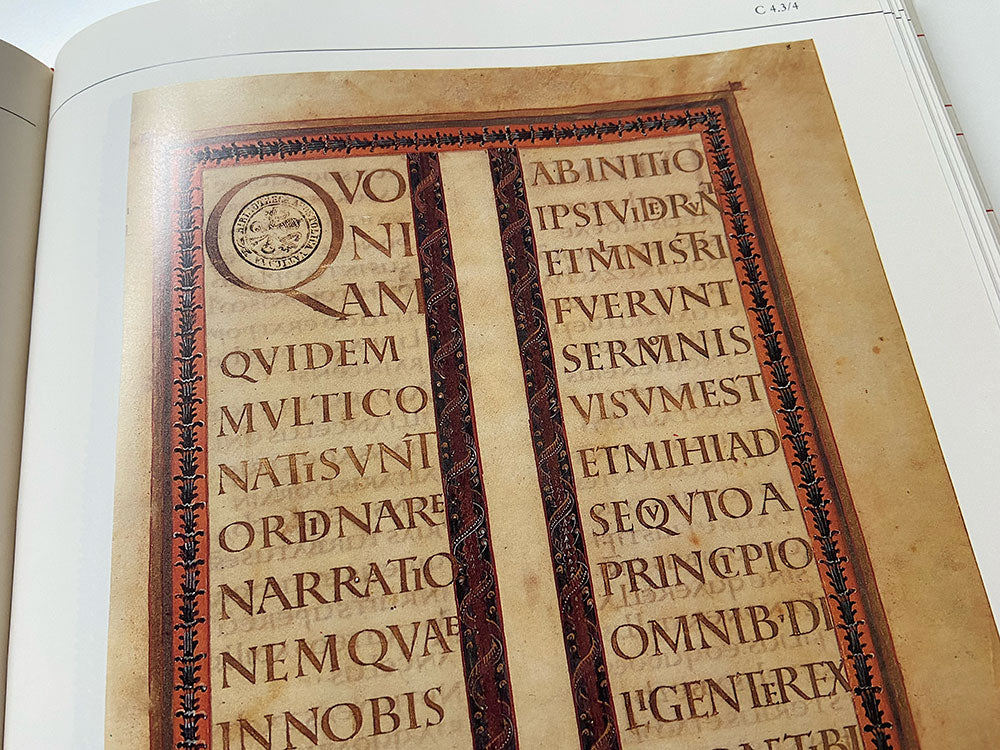 C 4.3/4
QVO
NI
AM
QVIDEM
MVLTI CO
NATISVNT
ORDINARE
NARRATIO
NEMQVAE
INNOBIS
BIBLIOTHECA APOSTOLICA VATICANA
ABINITIO
IPSIVIDERVNT
ETMINISTRI
FVERVNT
SERMONIS
VISVMEST
ETMIHIAD
SEQVVTO A
PRINCIPIO
OMNIB·DI
LIGENTEREX